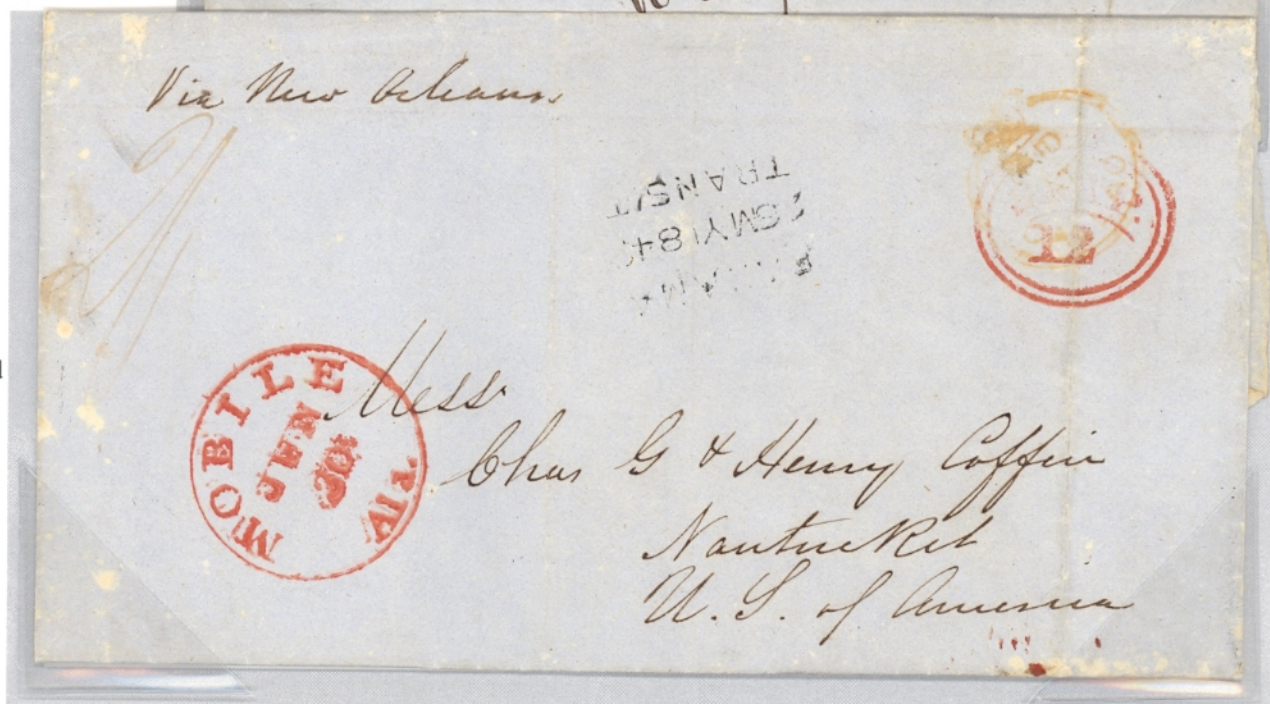 Via New Orleans
TRANSIT
12
MOBILE
JUN
30
Ala.
Mess
Chas G & Henry Coffin
Nantucket
U. S. of America